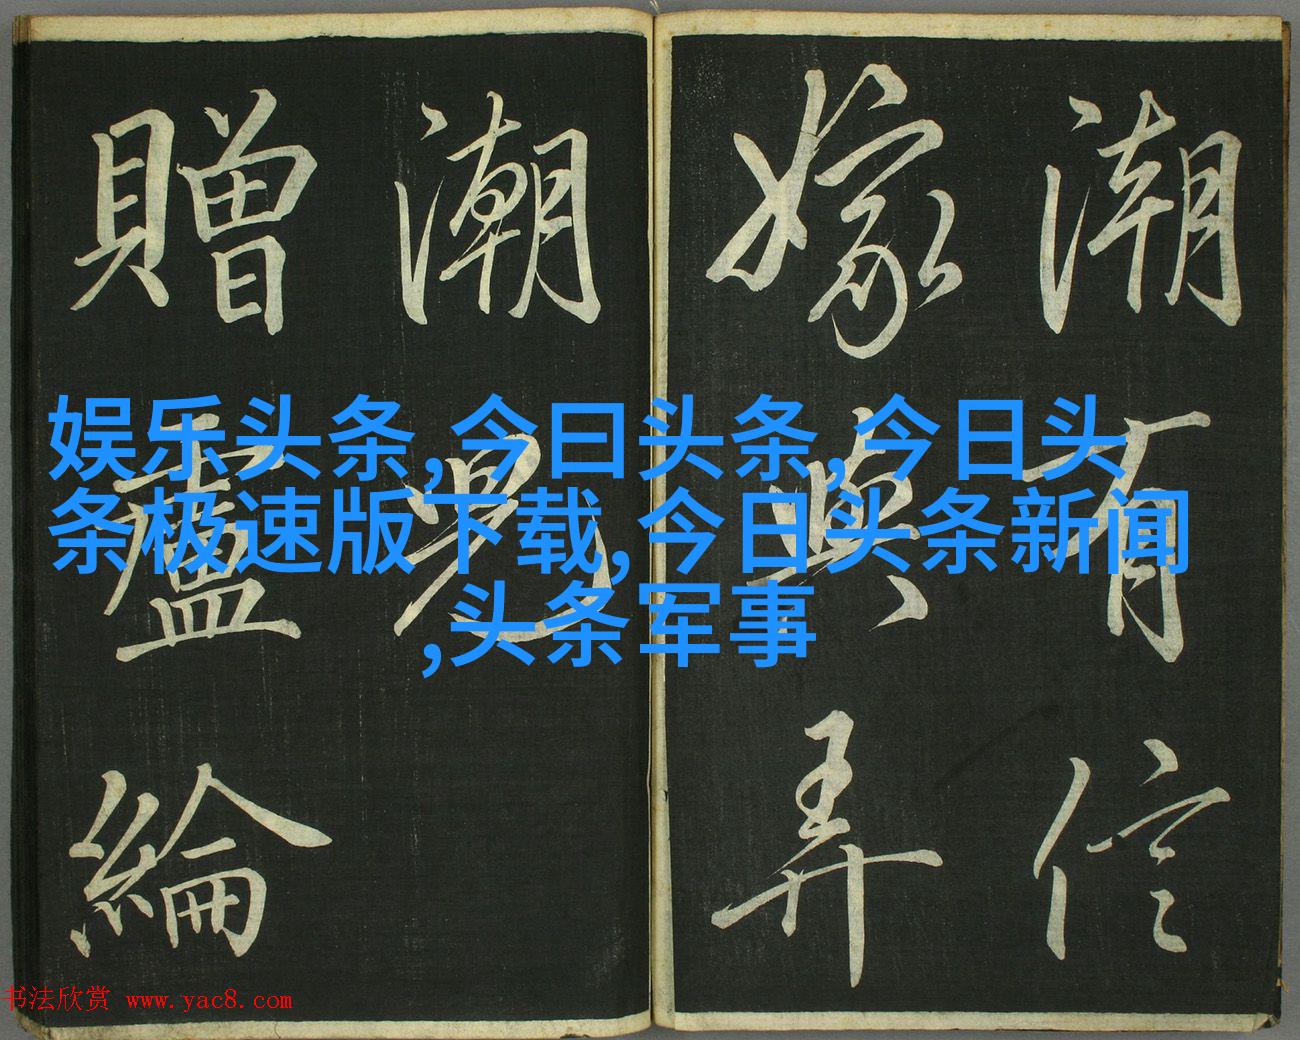 潮有信
嫁與弄
潮兒
贈盧綸
娱乐头条,今曰头条,今日头
条极速版下载,今日头条新闻
,头条军事
书法欣赏 www.yac8.com